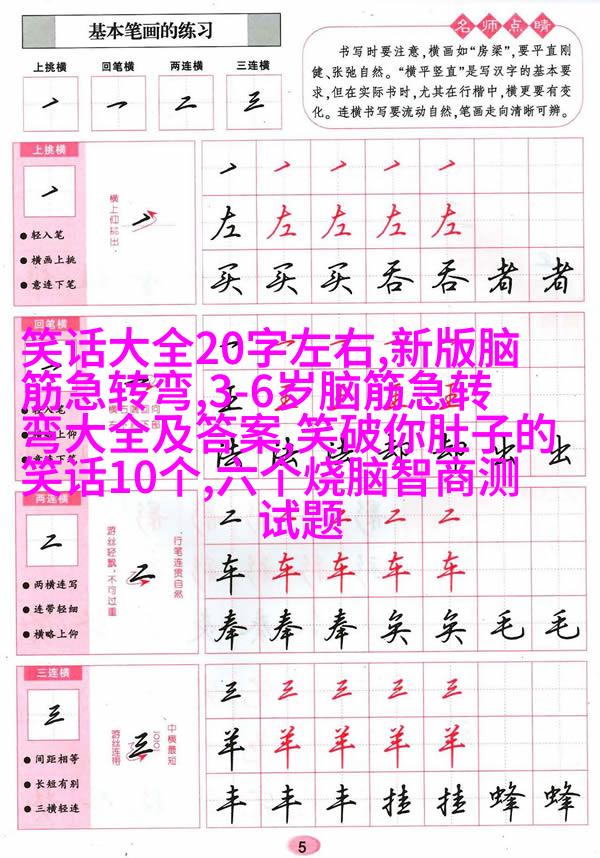 基本笔画的练习
上挑横 回笔横 两连横 三连横
名师点睛
书写时要注意,横画如“房梁”,要平直刚
健、张弛自然。“横平竖直”是写汉字的基本要
求,但在实际书时,尤其在行楷中,横更要有变
化。连横书写要流动自然,笔画走向清晰可辨。
上挑横
轻入笔
横画上挑
意连下笔
横上仰挑出
左 左 左 左 左
买 买 买 吞 吞 者 者
回笔横
笑话大全20字左右,新版脑
筋急转弯,3-6岁脑筋急转
弯大全及答案,笑破你肚子的
笑话10个,六个烧脑智商测
试题
两连横
两横连写
连带轻细
横略上仰
游丝轻飘,不可过重
行笔连贯自然
车 车 车 车 车
奉 奉 奉 奂 奂 毛 毛
三连横
间距相等
长短有别
三横轻连
游丝连带
中横最短
羊 羊 羊 羊 羊
丰 丰 丰 挂 挂 蜂 蜂
5